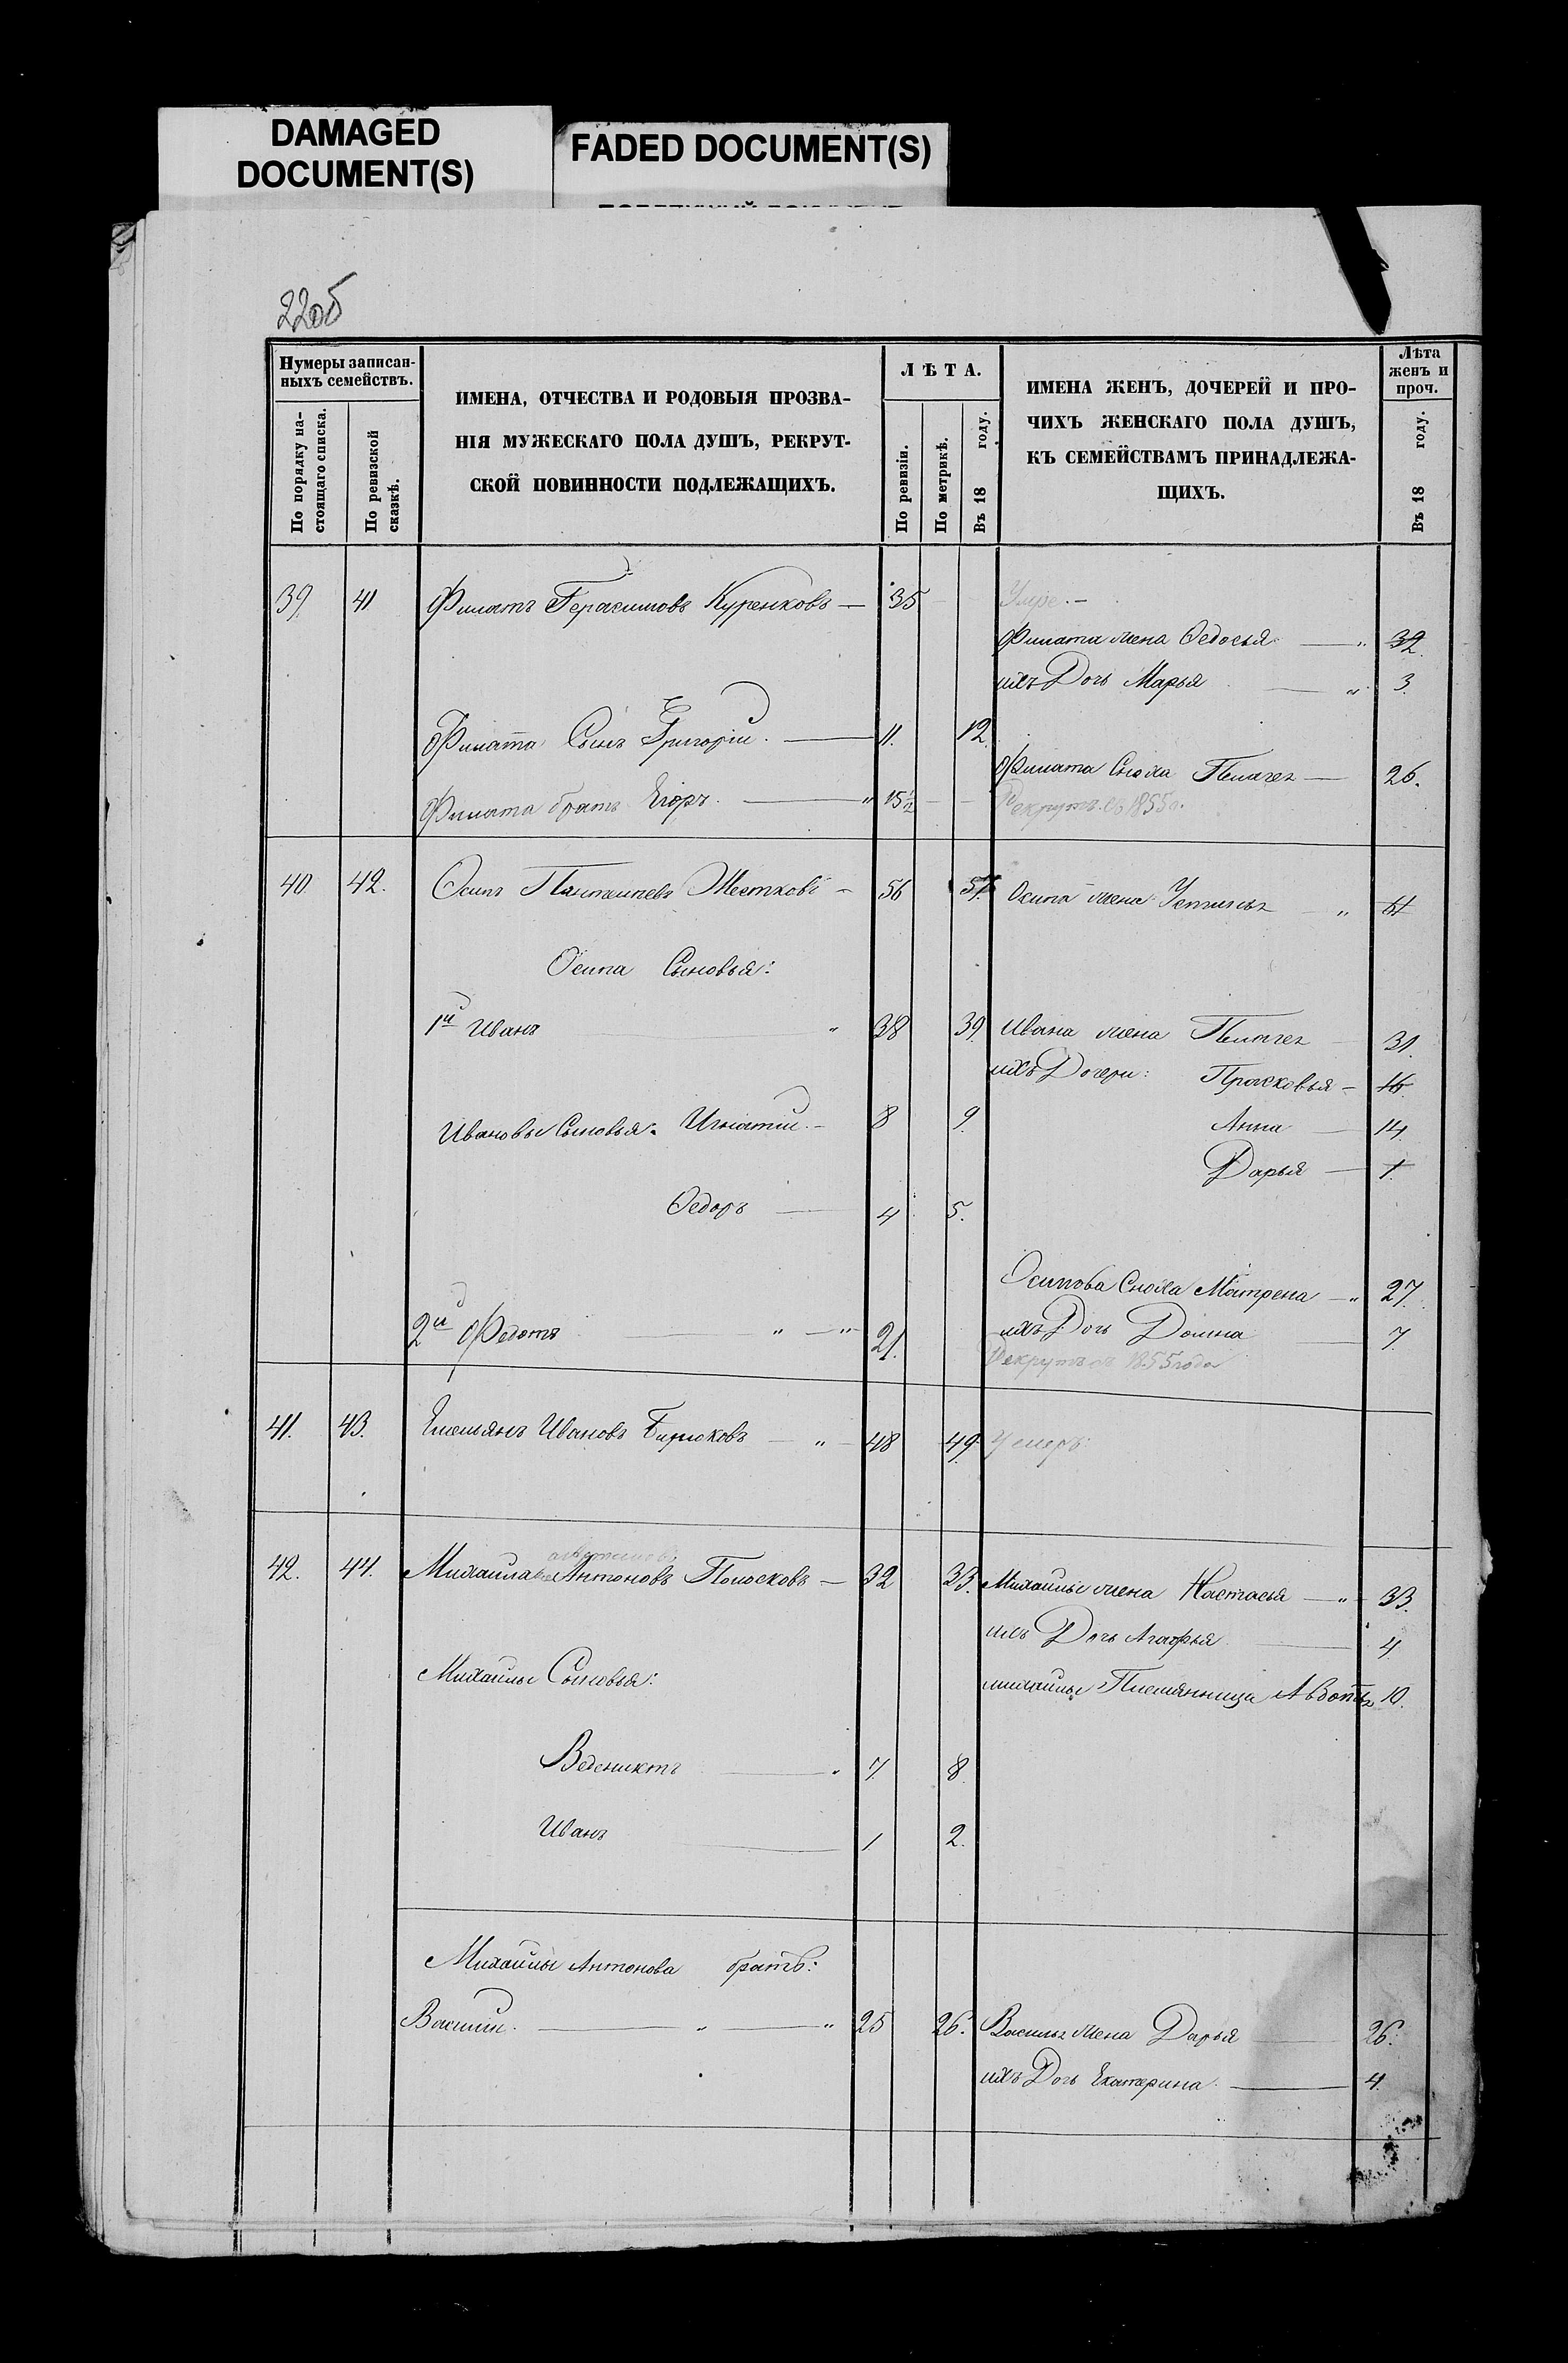 DAMAGED
DOCUMENT(S)
FADED DOCUMENT(S)
22об
Нумеры записан-
ныхъ семействъ.
По порядку на-
стоящаго списка.
По ревизской
сказкѣ.
ИМЕНА, ОТЧЕСТВА И РОДОВЫЯ ПРОЗВА-
НІЯ МУЖЕСКАГО ПОЛА ДУШЪ, РЕКРУТ-
СКОЙ ПОВИННОСТИ ПОДЛЕЖАЩИХЪ.
ЛѢТА.
По ревизіи.
По метрикѣ.
Въ 18 году.
ИМЕНА ЖЕНЪ, ДОЧЕРЕЙ И ПРО-
ЧИХЪ ЖЕНСКАГО ПОЛА ДУШЪ,
КЪ СЕМЕЙСТВАМЪ ПРИНАДЛЕЖА-
ЩИХЪ.
Лѣта
женъ и
проч.
Въ 18 году.
39. 41 Филатъ Герасимовъ Куренковъ — 35
Филата жена Ѳедосья — " 32.
ихъ Дочь Марья — " 3.
Филата Сынъ Григорій. — 11. 12.
Филата Сноха Пелагея — 26.
Филата братъ Егоръ. — " 15½ Рекрутъ съ 1855 г.
40. 42. Осипъ Пантелѣевъ — 56 57. Осипа жена "
Осипа Сыновья:
1й Иванъ " 38 39. Ивана жена Пелагея 31.
ихъ Дочери: Прасковья — 16.
Ивановы Сыновья: Игнатій. — 8 9. Анна — 14.
Дарья — 1.
Ѳедоръ — 4 5.
Осипова Сноха Матрена — " 27.
2й Федотъ — " — " 21. ихъ Дочь Домна 7.
Рекрутъ съ 1855 года
41. 43. Емельянъ Ивановъ Бирюковъ — " — 48 49. Умеръ
42. 44. Михаила Антоновъ Полосковъ — 32 33. Михайлы жена Настасья — " — 33.
ихъ Дочь Агафья 4.
Михайлы Сыновья:
михайлы Племянница Авдотья 10.
Веденихтъ — " 7. 8.
Иванъ — 1 2.
Михайлы Антонова братъ:
Василій. — " — " 25 26. Василья жена Дарья 26.
ихъ Дочь Екатерина. — 4.